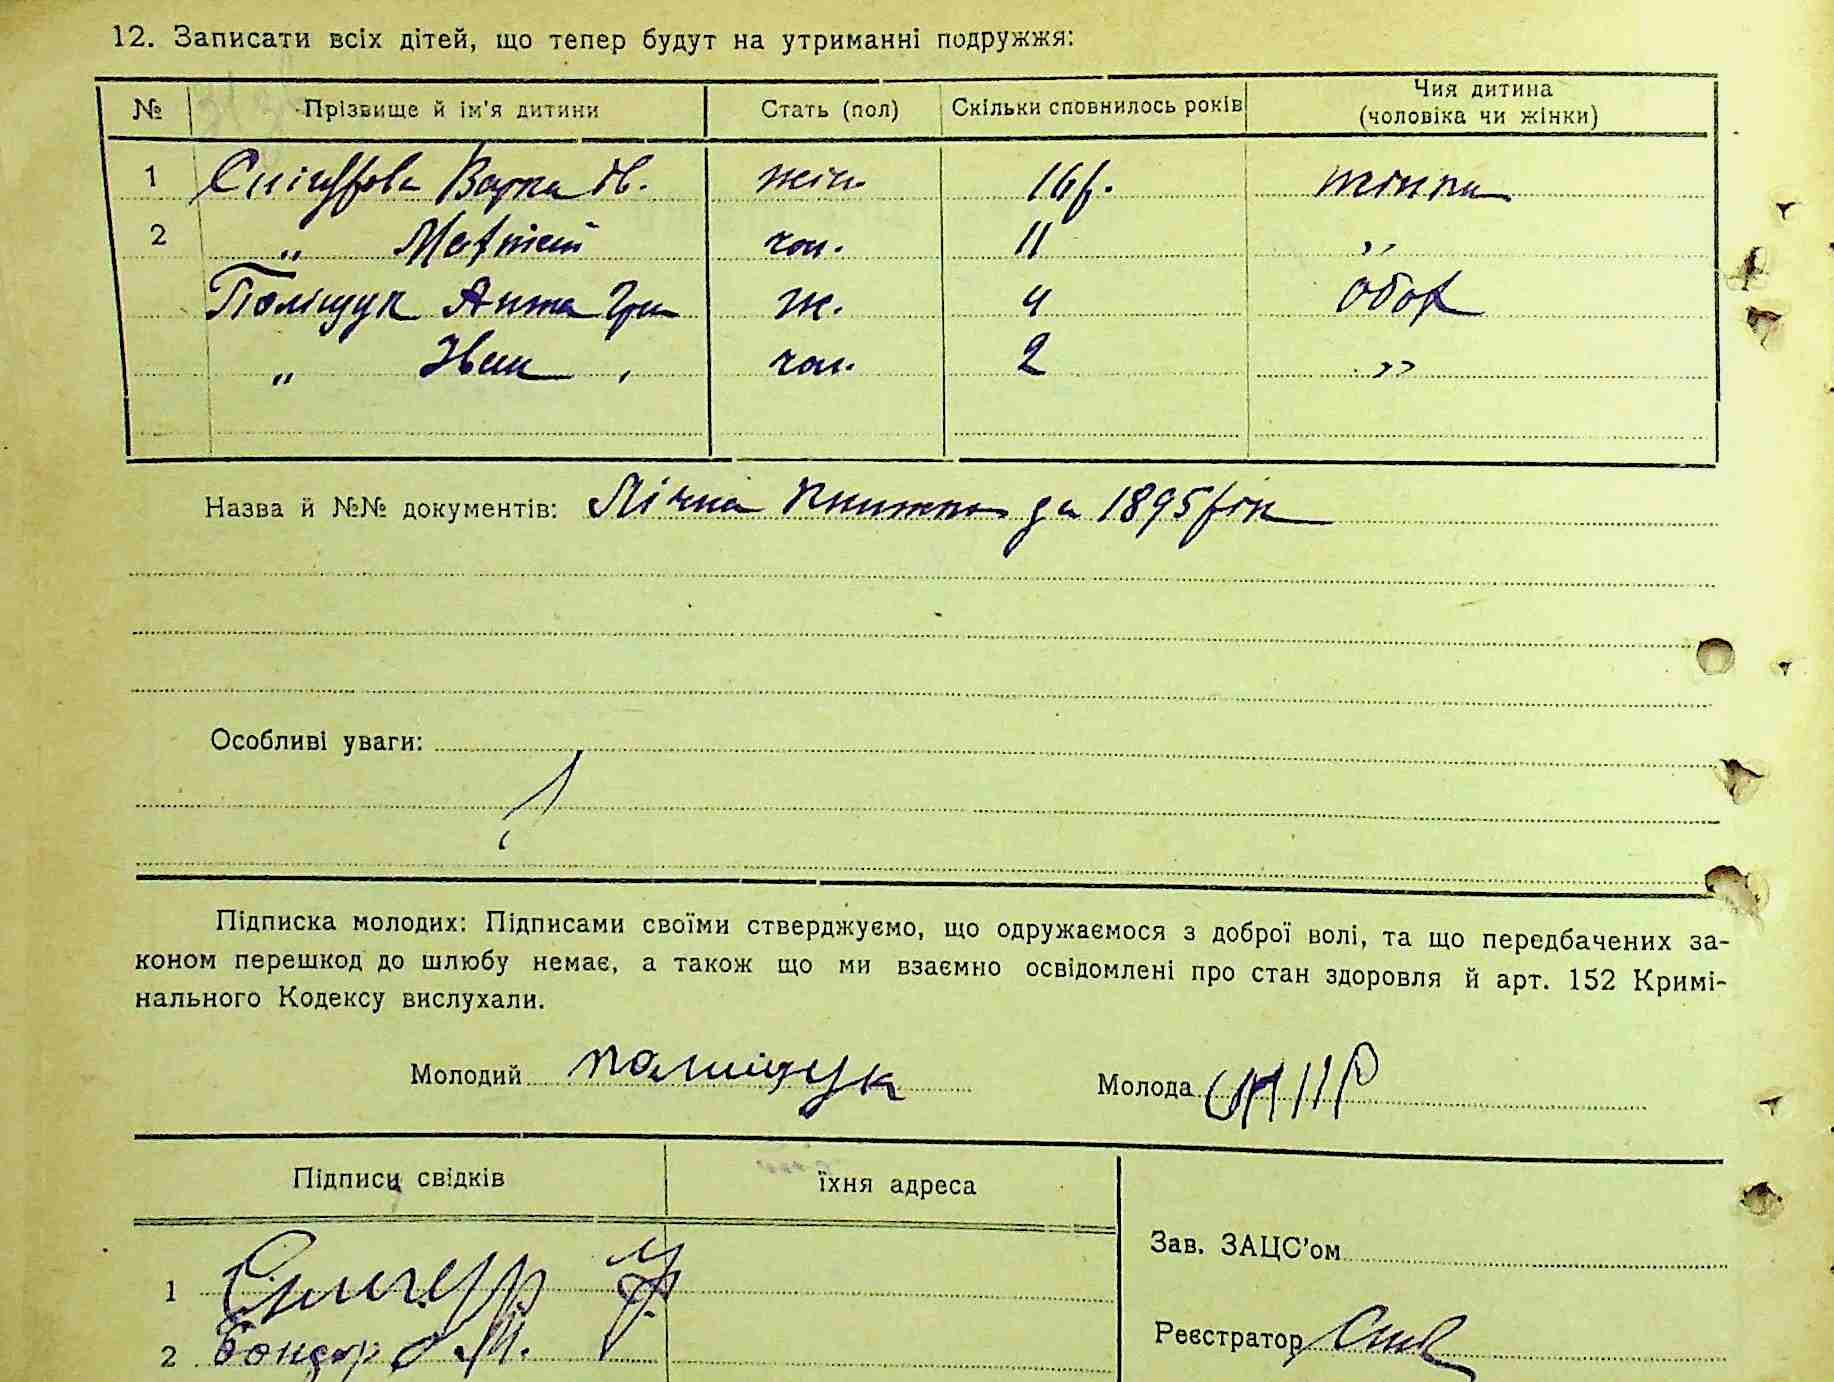 12. Записати всіх дітей, що тепер будут на утриманні подружжя:
№ Прізвище й ім'я дитини Стать (пол) Скільки сповнилось років Чия дитина (чоловіка чи жінки)
1 Варка Ів. жін. 16 р. жінки
2 „ Матвій чол. 11 „
Поліщук Анна Гри ж. 4 обох
„ Іван чол. 2 „
Назва й №№ документів: Лічна книжка за 1895 рік
Особливі уваги:
Підписка молодих: Підписами своїми стверджуємо, що одружаємося з доброї волі, та що передбачених за-
коном перешкод до шлюбу немає, а також що ми взаємно освідомлені про стан здоровля й арт. 152 Кримі-
нального Кодексу вислухали.
Молодий Полищук Молода
Підписи свідків їхня адреса
Зав. ЗАЦС'ом
1
Реєстратор
2 Бондар М.